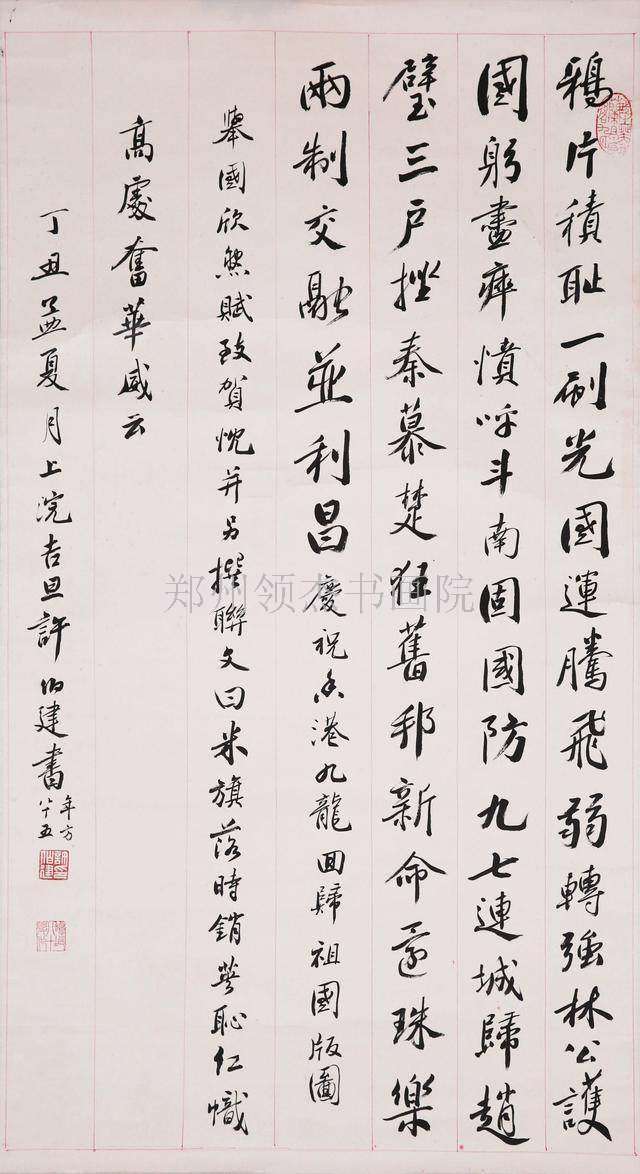 鴉片積耻一刷光國運騰飛弱轉強林公護
國躬盡瘁憤呼斗南固國防九七連城歸趙
璧三戶挫秦慕楚狂舊邦新命還珠樂
兩制交融並利昌慶祝香港九龍回歸祖國版圖
舉國欣然賦致賀忱并另撰聯文曰米旗落時銷英恥紅幟
高處奮華威云
丁丑孟夏月上浣吉旦許伯建書年方
八十五
郑州领杰书画院